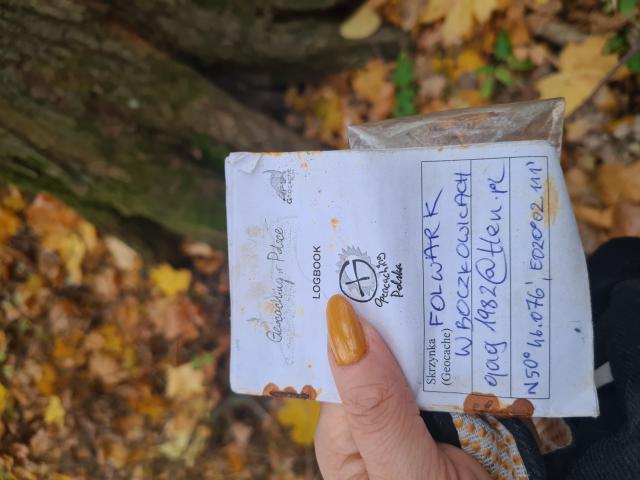 GEOCACHE
Geocaching w Polsce
LOGBOOK
Geocaching
Polska
Skrzynka
(Geocache)
FOLWARK
W BOCZKOWICACH
opag1982@tlen.pl
N50° 46.076', E020°02.111'